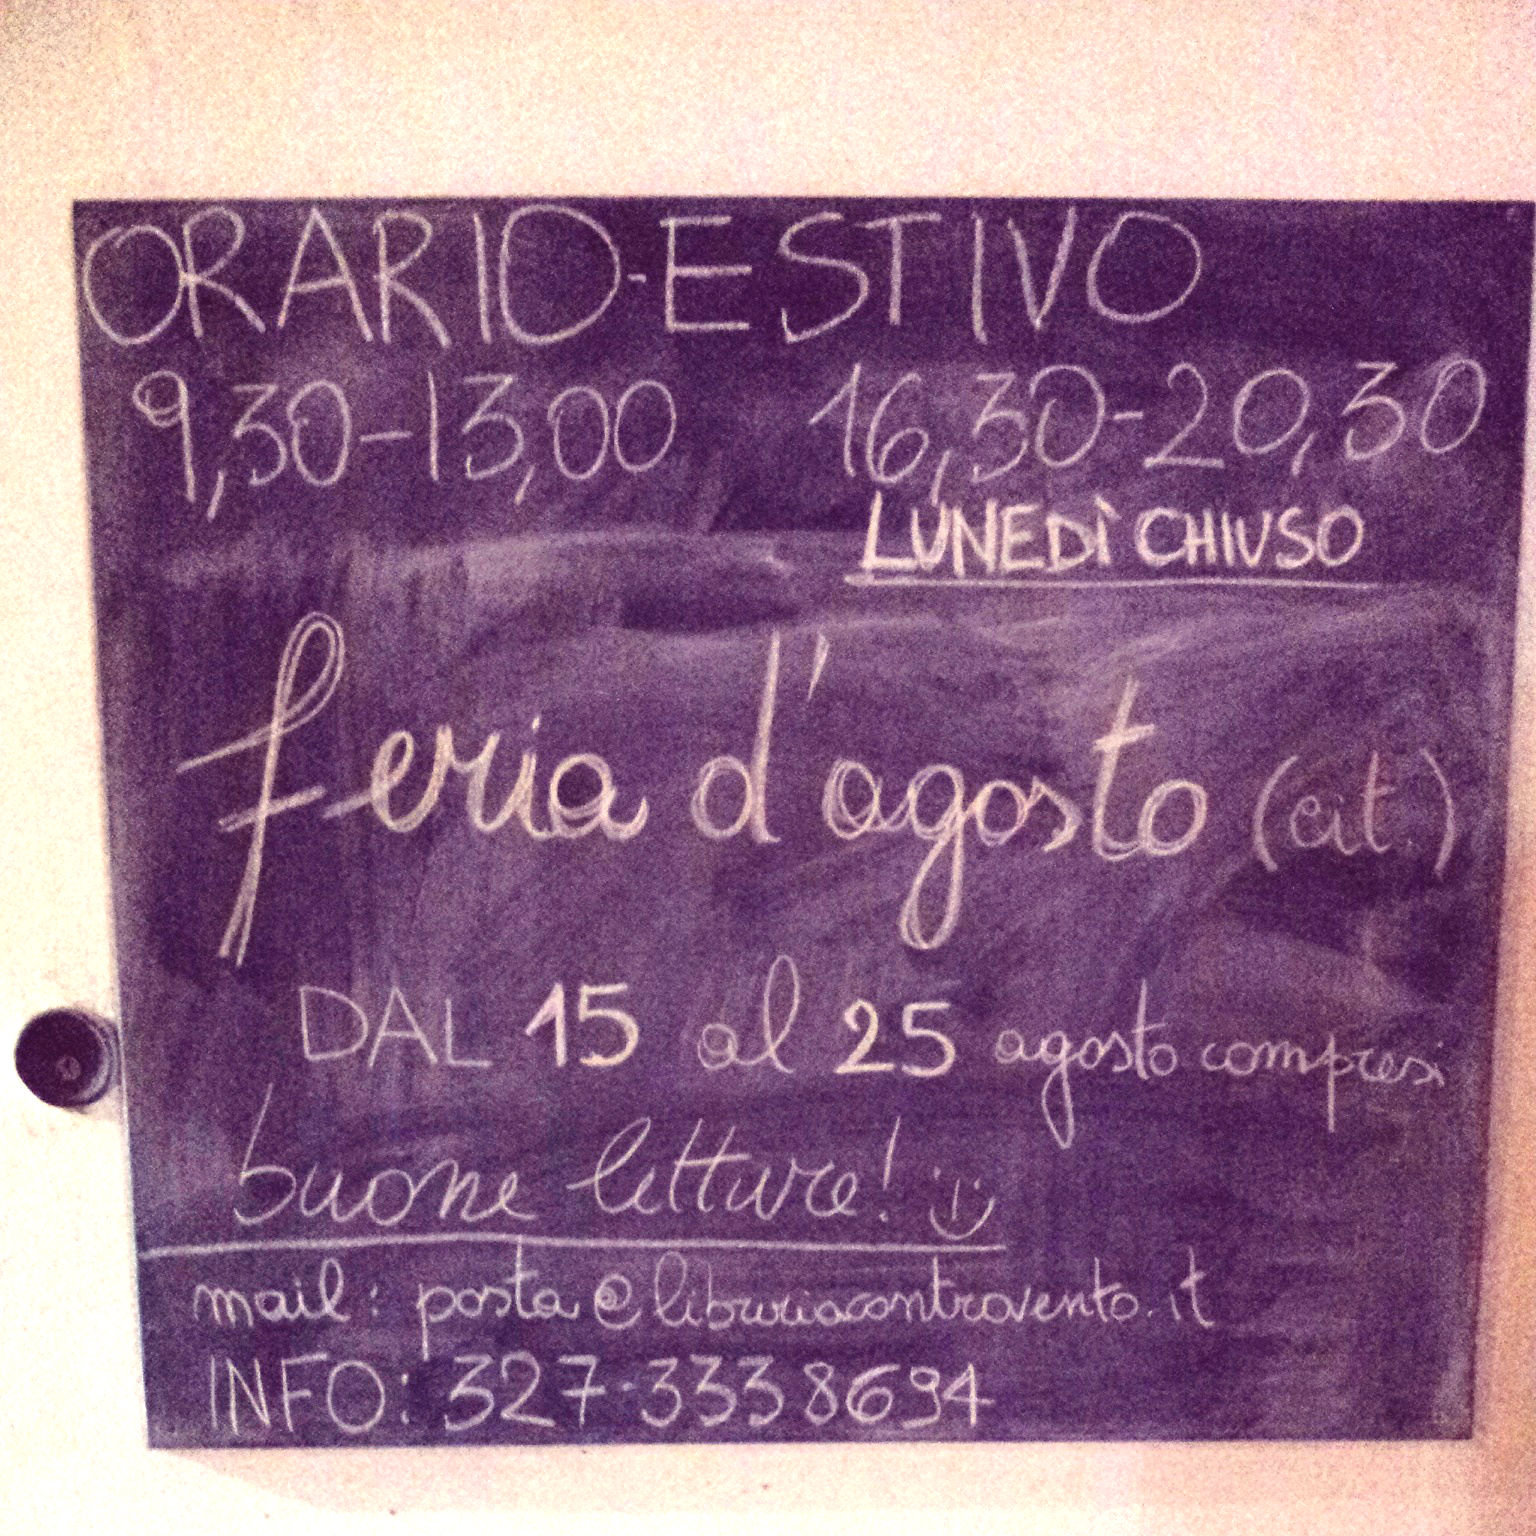 ORARIO-ESTIVO
9,30-13,00 16,30-20,30
LUNEDÌ CHIUSO
feria d'agosto (cit.)
DAL 15 al 25 agosto compresi
buone letture! :)
mail: posta@libreriacontrovento.it
INFO: 327-3338694